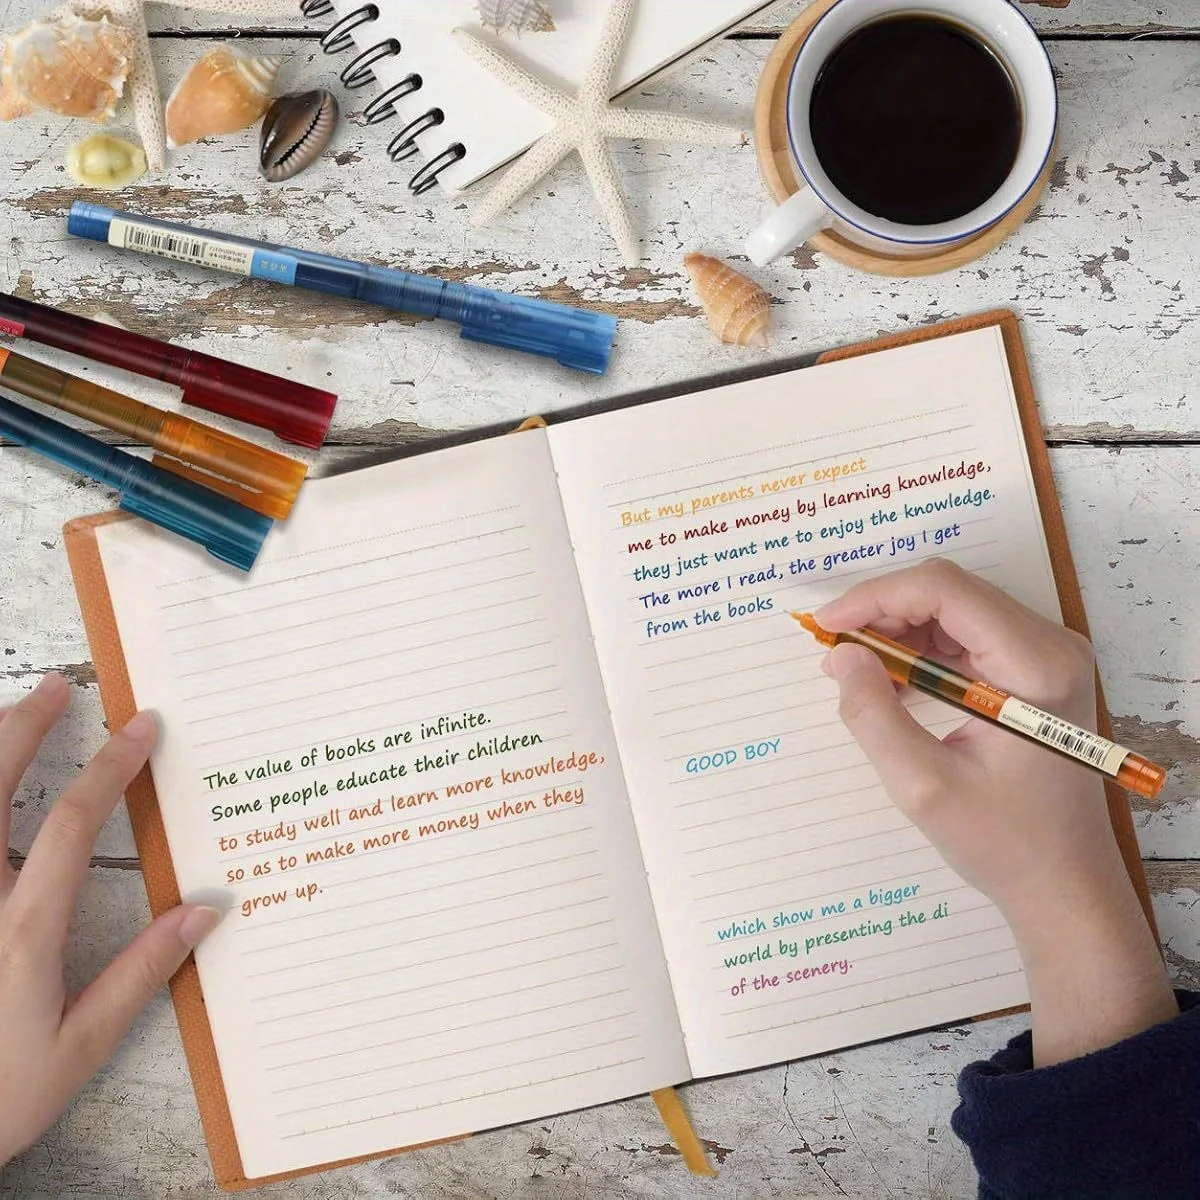 The value of books are infinite.
Some people educate their children
to study well and learn more knowledge,
so as to make more money when they
grow up.
But my parents never expect
me to make money by learning knowledge,
they just want me to enjoy the knowledge.
The more I read, the greater joy I get
from the books
GOOD BOY
which show me a bigger
world by presenting the di
of the scenery.